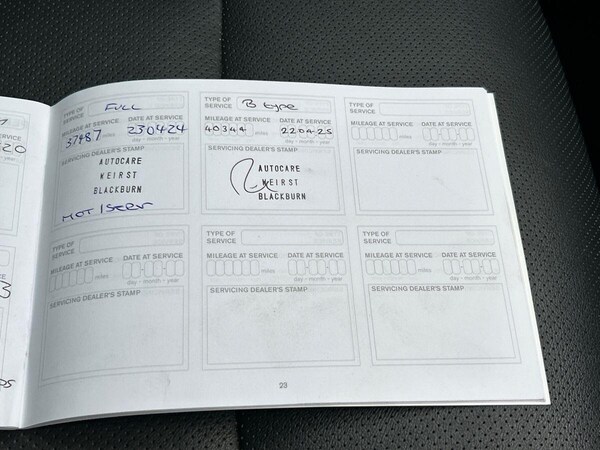 TYPE OF SERVICE FULL
MILEAGE AT SERVICE DATE AT SERVICE
37487 miles 230424
day - month - year
SERVICING DEALER'S STAMP
AUTOCARE
WEIRST
BLACKBURN
MOT
TYPE OF SERVICE B type
MILEAGE AT SERVICE DATE AT SERVICE
40344 miles 220425
day - month - year
SERVICING DEALER'S STAMP
AUTOCARE
WEIRST
BLACKBURN
TYPE OF SERVICE
MILEAGE AT SERVICE DATE AT SERVICE
miles
day - month - year
SERVICING DEALER'S STAMP
TYPE OF SERVICE
MILEAGE AT SERVICE DATE AT SERVICE
miles
day - month - year
SERVICING DEALER'S STAMP
TYPE OF SERVICE
MILEAGE AT SERVICE DATE AT SERVICE
miles
day - month - year
SERVICING DEALER'S STAMP
TYPE OF SERVICE
MILEAGE AT SERVICE DATE AT SERVICE
miles
day - month - year
SERVICING DEALER'S STAMP
23